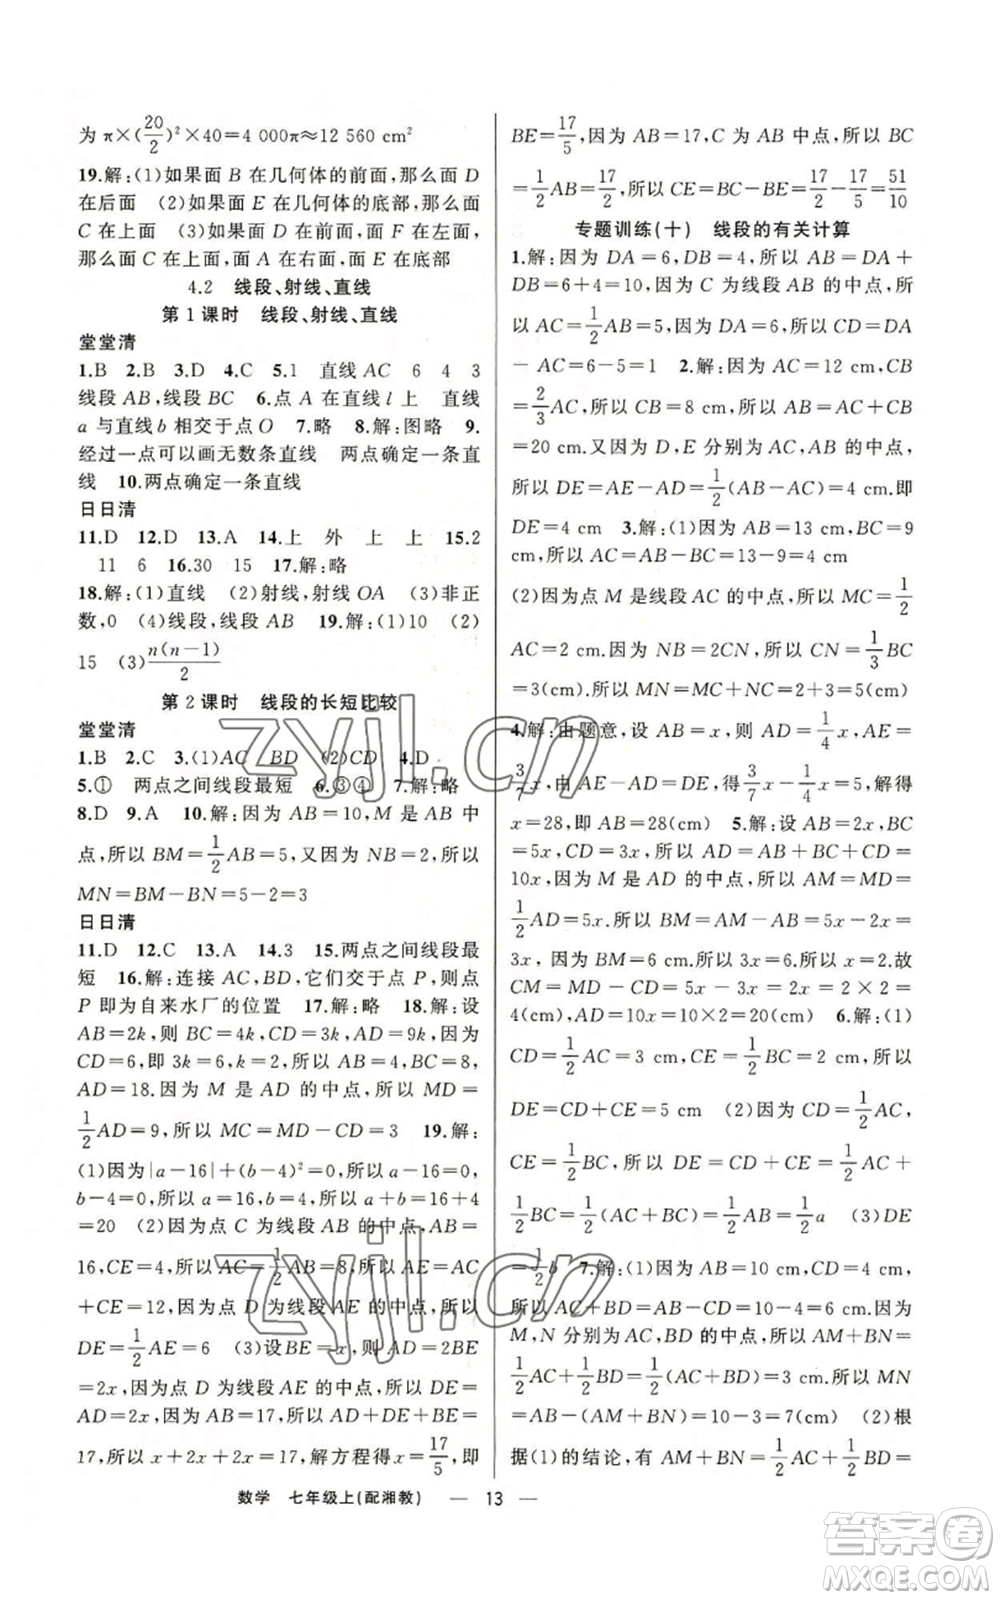 为π×(20/2)²×40=4 000π≈12 560 cm²
19.解:(1)如果面 B 在几何体的前面,那么面 D
在后面 (2)如果面 E 在几何体的底部,那么面
C 在上面 (3)如果面 D 在前面,面 F 在左面,
那么面 A 在底部或面 E 在底部
4.2 线段、射线、直线
第 1 课时 线段、射线、直线
堂堂清
1.B 2.B 3.D 4.C 5.1 直线 AC 6 4 3
线段 AB,线段 BC 6.点 A 在直线 l 上 直线
a 与直线 b 相交于点 O 7.略 8.解:图略 9.
经过一点可以画无数条直线 两点确定一条直
线 10.两点确定一条直线
日日清
11.D 12.D 13.A 14.上 外 上 上 15.2
11 6 16.30 15 17.解:略
18.解:(1)直线 (2)射线,射线 OA (3)非正
数,0 (4)线段,线段 AB 19.解:(1)10 (2)
15 (3)n(n-1)/2
第 2 课时 线段的长短比较
堂堂清
1.B 2.C 3.(1)AC BD (2)CD 4.D
5.① 两点之间线段最短 6.③④ 7.解:略
8.D 9.A 10.解:因为 AB=10,M 是 AB 中
点,所以 BM=1/2AB=5,又因为 NB=2,所以
MN=BM-BN=5-2=3
日日清
11.D 12.C 13.A 14.3 15.两点之间线段最
短 16.解:连接 AC,BD,它们交于点 P,则点
P 即为自来水厂的位置 17.解:略 18.解:设
AB=2k,则 BC=4k,CD=3k,AD=9k,因为
CD=6,即 3k=6,k=2,所以 AB=4,BC=8,
AD=18.因为 M 是 AD 的中点,所以 MD=
1/2AD=9,所以 MC=MD-CD=3 19.解:
(1)因为|a-16|+(b-4)²=0,所以 a-16=0,
b-4=0,所以 a=16,b=4,所以 a+b=16+4
=20 (2)因为点 C 为线段 AB 的中点,AB=
16,CE=4,所以 AC=1/2AB=8,所以 AE=AC
+CE=12,因为点 D 为线段 AE 的中点,所以
DE=1/2AE=6 (3)设 BE=x,则 AD=2BE
=2x,因为点 D 为线段 AE 的中点,所以 DE=
AD=2x,因为 AB=17,所以 AD+DE+BE=
17,所以 x+2x+2x=17,解方程得 x=17/5,即
BE=17/5,因为 AB=17,C 为 AB 中点,所以 BC
=1/2AB=17/2,所以 CE=BC-BE=17/2-17/5=51/10
专题训练(十) 线段的有关计算
1.解:因为 DA=6,DB=4,所以 AB=DA+
DB=6+4=10,因为 C 为线段 AB 的中点,所
以 AC=1/2AB=5,因为 DA=6,所以 CD=DA
-AC=6-5=1 2.解:因为 AC=12 cm,CB=
2/3AC,所以 CB=8 cm,所以 AB=AC+CB
=20 cm.又因为 D,E 分别为 AC,AB 的中点,
所以 DE=AE-AD=1/2(AB-AC)=4 cm.即
DE=4 cm 3.解:(1)因为 AB=13 cm,BC=9
cm,所以 AC=AB-BC=13-9=4 cm
(2)因为点 M 是线段 AC 的中点,所以 MC=1/2
AC=2 cm.因为 NB=2CN,所以 CN=1/3BC
=3(cm),所以 MN=MC+NC=2+3=5(cm)
4.解:由题意,设 AB=x,则 AD=1/4x,AE=
3/7x,由 AE-AD=DE,得3/7x-1/4x=5,解得
x=28,即 AB=28(cm) 5.解:设 AB=2x,BC
=5x,CD=3x,所以 AD=AB+BC+CD=
10x,因为 M 是 AD 的中点,所以 AM=MD=
1/2AD=5x.所以 BM=AM-AB=5x-2x=
3x,因为 BM=6 cm,所以 3x=6.所以 x=2.故
CM=MD-CD=5x-3x=2x=2×2=
4(cm),AD=10x=10×2=20(cm) 6.解:(1)
CD=1/2AC=3 cm,CE=1/2BC=2 cm,所以
DE=CD+CE=5 cm (2)因为 CD=1/2AC,
CE=1/2BC,所以 DE=CD+CE=1/2AC+
1/2BC=1/2(AC+BC)=1/2AB=1/2a (3)DE
=1/2b 7.解:(1)因为 AB=10 cm,CD=4 cm,
所以 AC+BD=AB-CD=10-4=6 cm.因为
M,N 分别为 AC,BD 的中点,所以 AM+BN=
1/2AC+1/2BD=1/2(AC+BD)=3 cm.所以 MN
=AB-(AM+BN)=10-3=7(cm) (2)根
据(1)的结论,有 AM+BN=1/2AC+1/2BD=
数学 七年级上(配湘教) — 13 —
zyjl.cn
zyjl.cn
答案圈
MXQE.COM